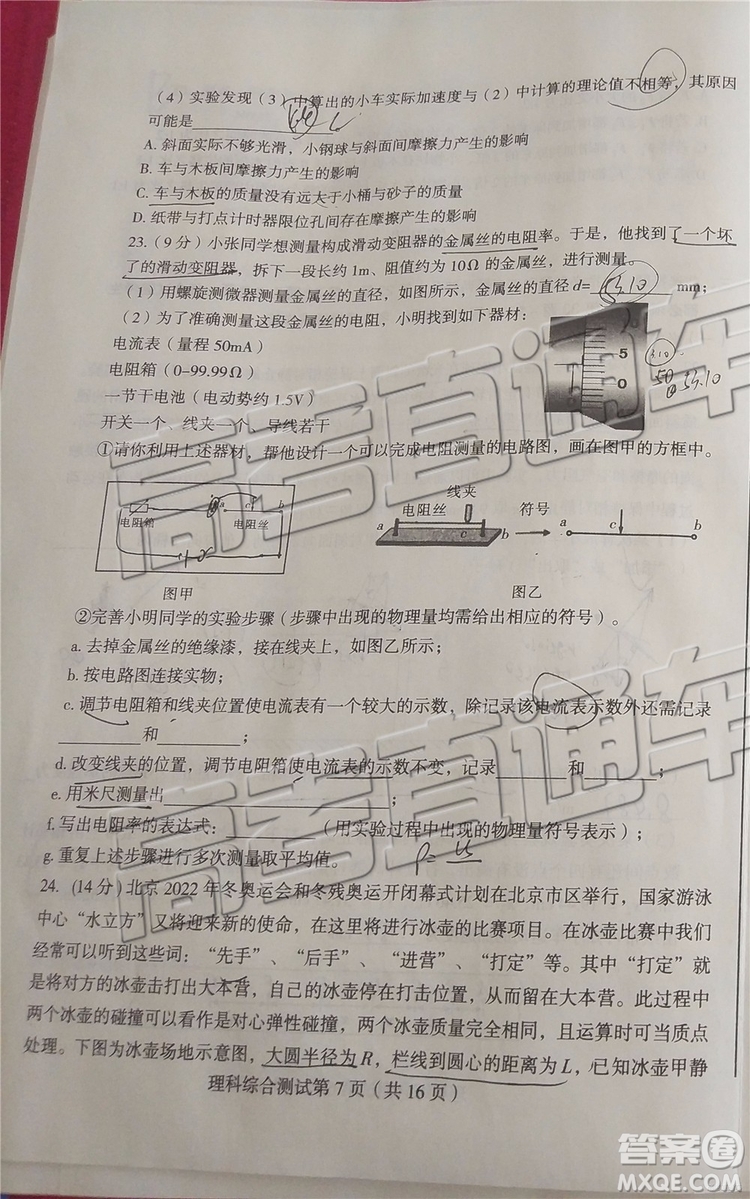 （4）实验发现（3）中算出的小车实际加速度与（2）中计算的理论值不相等，其原因
可能是____________
A. 斜面实际不够光滑，小钢球与斜面间摩擦力产生的影响
B. 车与木板间摩擦力产生的影响
C. 车与木板的质量没有远大于小桶与砂子的质量
D. 纸带与打点计时器限位孔间存在摩擦产生的影响
23.（9分）小张同学想测量构成滑动变阻器的金属丝的电阻率。于是，他找到了一个坏
了的滑动变阻器，拆下一段长约1m、阻值约为10Ω的金属丝，进行测量。
（1）用螺旋测微器测量金属丝的直径，如图所示，金属丝的直径d=________mm；
（2）为了准确测量这段金属丝的电阻，小明找到如下器材：
电流表（量程50mA）
5
电阻箱（0-99.99Ω）
0
一节干电池（电动势约1.5V）
开关一个、线夹一个、导线若干
①请你利用上述器材，帮他设计一个可以完成电阻测量的电路图，画在图甲的方框中。
线夹
电阻丝 符号
a c b
电阻箱 电阻丝
a c b
a c b
图甲 图乙
②完善小明同学的实验步骤（步骤中出现的物理量均需给出相应的符号）。
a. 去掉金属丝的绝缘漆，接在线夹上，如图乙所示；
b. 按电路图连接实物；
c. 调节电阻箱和线夹位置使电流表有一个较大的示数，除记录该电流表示数外还需记录
________和________；
d. 改变线夹的位置，调节电阻箱使电流表的示数不变，记录________和________；
e. 用米尺测量出____________________；
f. 写出电阻率的表达式：________（用实验过程中出现的物理量符号表示）；
g. 重复上述步骤进行多次测量取平均值。
24.（14分）北京2022年冬奥运会和冬残奥运开闭幕式计划在北京市区举行，国家游泳
中心“水立方”又将迎来新的使命，在这里将进行冰壶的比赛项目。在冰壶比赛中我们
经常可以听到这些词：“先手”、“后手”、“进营”、“打定”等。其中“打定”就
是将对方的冰壶击打出大本营，自己的冰壶停在打击位置，从而留在大本营。此过程中
两个冰壶的碰撞可以看作是对心弹性碰撞，两个冰壶质量完全相同，且运算时可当质点
处理。下图为冰壶场地示意图，大圆半径为R，栏线到圆心的距离为L，已知冰壶甲静
理科综合测试第7页（共16页）
高考直通车
高考直通车
答案圈
MXQE.COM